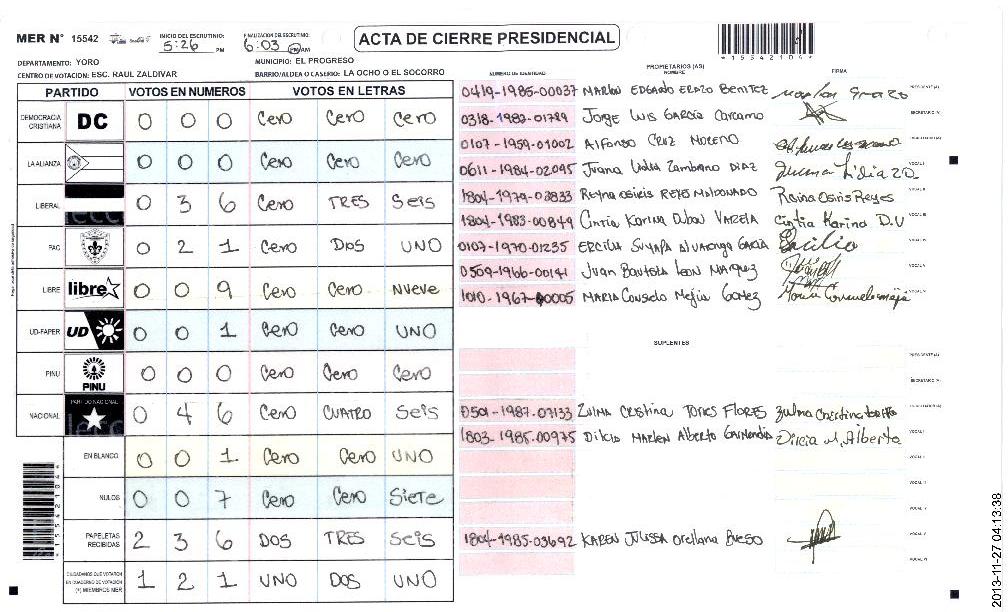 MER N° 15542
INICIO DEL ESCRUTINIO: 5:26 PM
FINALIZACION DEL ESCRUTINIO: 6:03 PM AM
ACTA DE CIERRE PRESIDENCIAL
DEPARTAMENTO: YORO
MUNICIPIO: EL PROGRESO
CENTRO DE VOTACION: ESC. RAUL ZALDIVAR
BARRIO/ALDEA O CASERIO: LA OCHO O EL SOCORRO
PARTIDO VOTOS EN NUMEROS VOTOS EN LETRAS
DEMOCRACIA CRISTIANA DC 0 0 0 Cero Cero Cero
LA ALIANZA 0 0 0 Cero Cero Cero
LIBERAL 0 3 6 Cero TRES Seis
PAC 0 2 1 Cero DOS UNO
LIBRE libre 0 0 9 Cero Cero Nueve
UD-FAPER UD 0 0 1 Cero Cero UNO
PINU PINU 0 0 0 Cero Cero Cero
NACIONAL PARTIDO NACIONAL 0 4 6 Cero CUATRO Seis
EN BLANCO 0 0 1 Cero Cero UNO
NULOS 0 0 7 Cero Cero Siete
PAPELETAS RECIBIDAS 2 3 6 DOS TRES Seis
CIUDADANOS QUE VOTARON EN CUADERNO DE VOTACIÓN (+) MIEMBROS MER 1 2 1 UNO DOS UNO
NUMERO DE IDENTIDAD PROPIETARIOS (AS) NOMBRE FIRMA
0419-1985-00037 MARLON EDGARDO ERAZO BENITEZ Marlon Erazo PRESIDENTE(A)
0318-1982-01789 Jorge Luis García Carcamo SECRETARIO(A)
0107-1959-01002 ALFONSO CRUZ MORENO
0611-1984-02095 Juana Lidia Zambrano DIAZ Juana Lidia Z.D. VOCAL I
1804-1979-03833 Reyna Osiris REYES MALDONADO Reina Osiris Reyes VOCAL II
1804-1983-00849 Cintia Karina Dubon VARELA Cintia Karina D.V VOCAL III
0107-1970-01235 ERCILIA SUYAPA Alvarenga García Ercilia VOCAL IV
0509-1966-00141 Juan Bautista Leon Marquez VOCAL V
1010-1967-00005 MARIA Consuelo Mejia GOMEZ Maria Consuelo mejia
SUPLENTES
PRESIDENTE(A)
SECRETARIO(A)
0501-1987-07133 ZULMA CRISTINA TORRES FLORES Zulma Cristina torres
1803-1985-00975 Dilcia MARLEN Alberto Dilcia M. Alberto VOCAL I
VOCAL II
VOCAL III
VOCAL IV
1804-1985-03692 KAREN JULISSA Orellana VOCAL V
VOCAL VI
15542104
2013-11-27 04:13:38